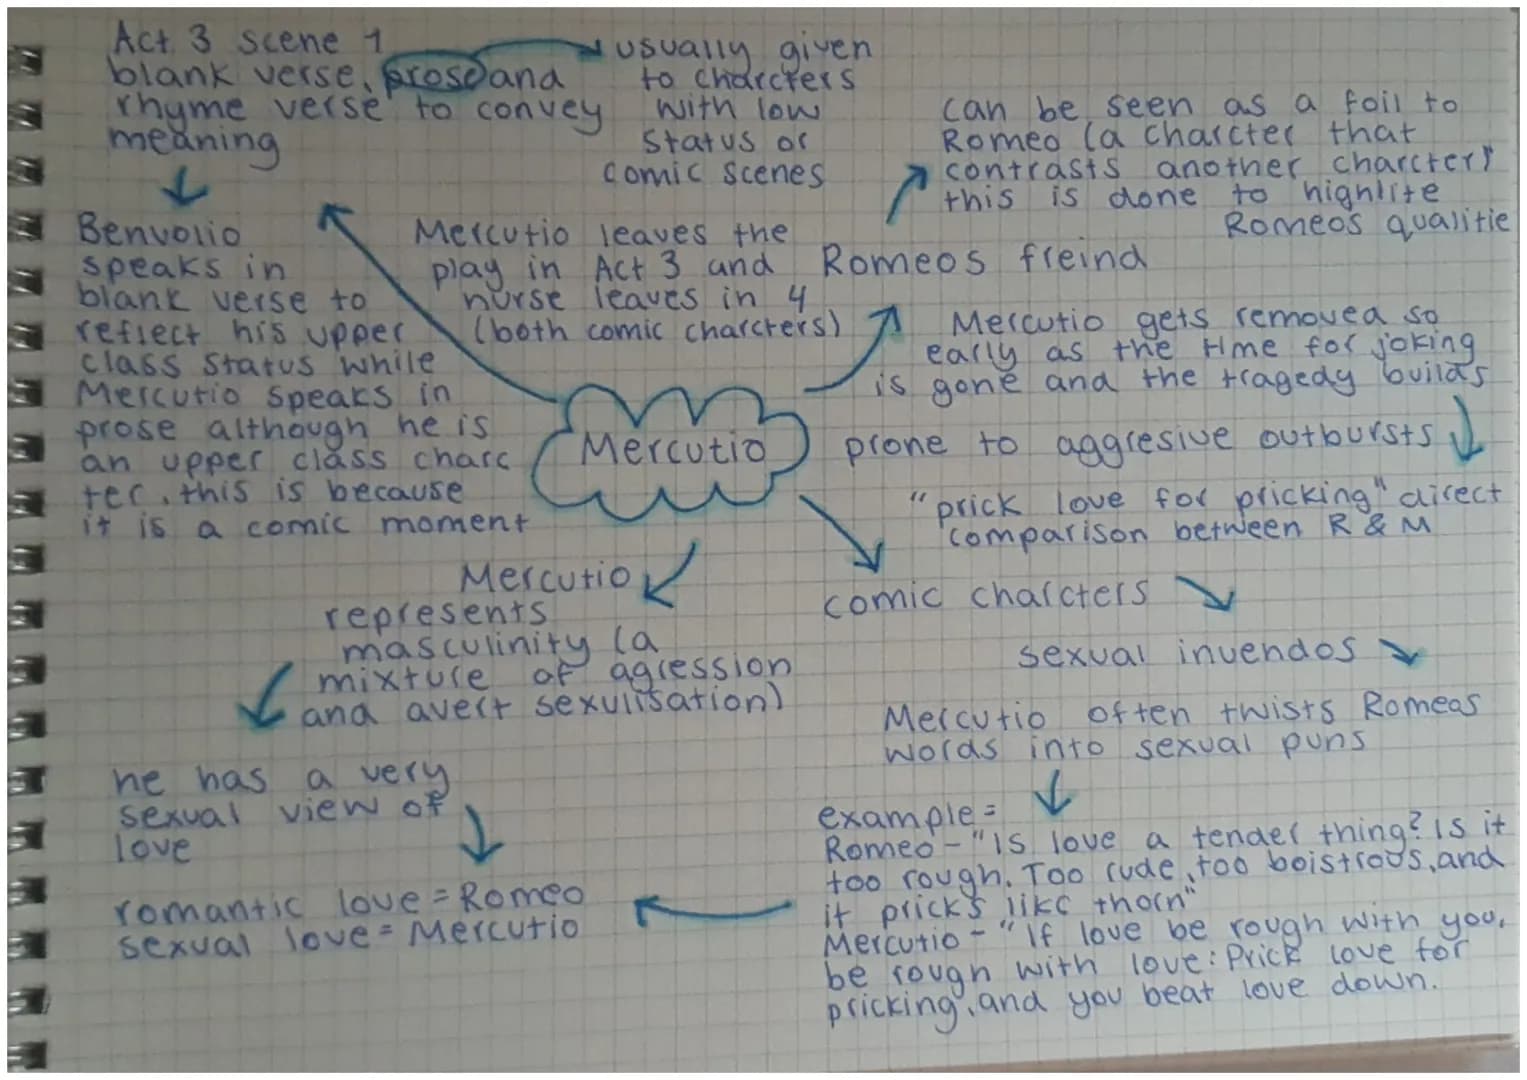 Act 3 scene 1
blank verse, prose and
rhyme verse to convey
meaning
usually given
to charcters
with low
status or
comic scenes
can be seen as a foil to
Romeo (a charcter that
contrasts another charcter)
this is done to highlite
Romeos qualitie
Benvolio
speaks in
blank verse to
reflect his upper
class status while
Mercutio speaks in
prose although he is
an upper class charc
ter. this is because
it is a comic moment
Mercutio leaves the
play in Act 3 and
nurse leaves in 4
(both comic charcters)
Romeos freind
Mercutio gets removed so
early as the time for joking
is gone and the tragedy builds
Mercutio
prone to aggresive outbursts
"prick love for pricking" direct
comparison between R & M
Mercutio
represents
masculinity (a
mixture of agression
and avert sexulisation)
comic charcters
sexual invendos
Mercutio often twists Romeos
words into sexual puns
he has a very
sexual view of
love
romantic love = Romeo
sexual love = Mercutio
example =
Romeo - "Is love a tender thing? Is it
too rough. Too rude, too boistrous, and
it pricks like thorn"
Mercutio - "If love be rough with you,
be rough with love: Prick love for
pricking, and you beat love down.